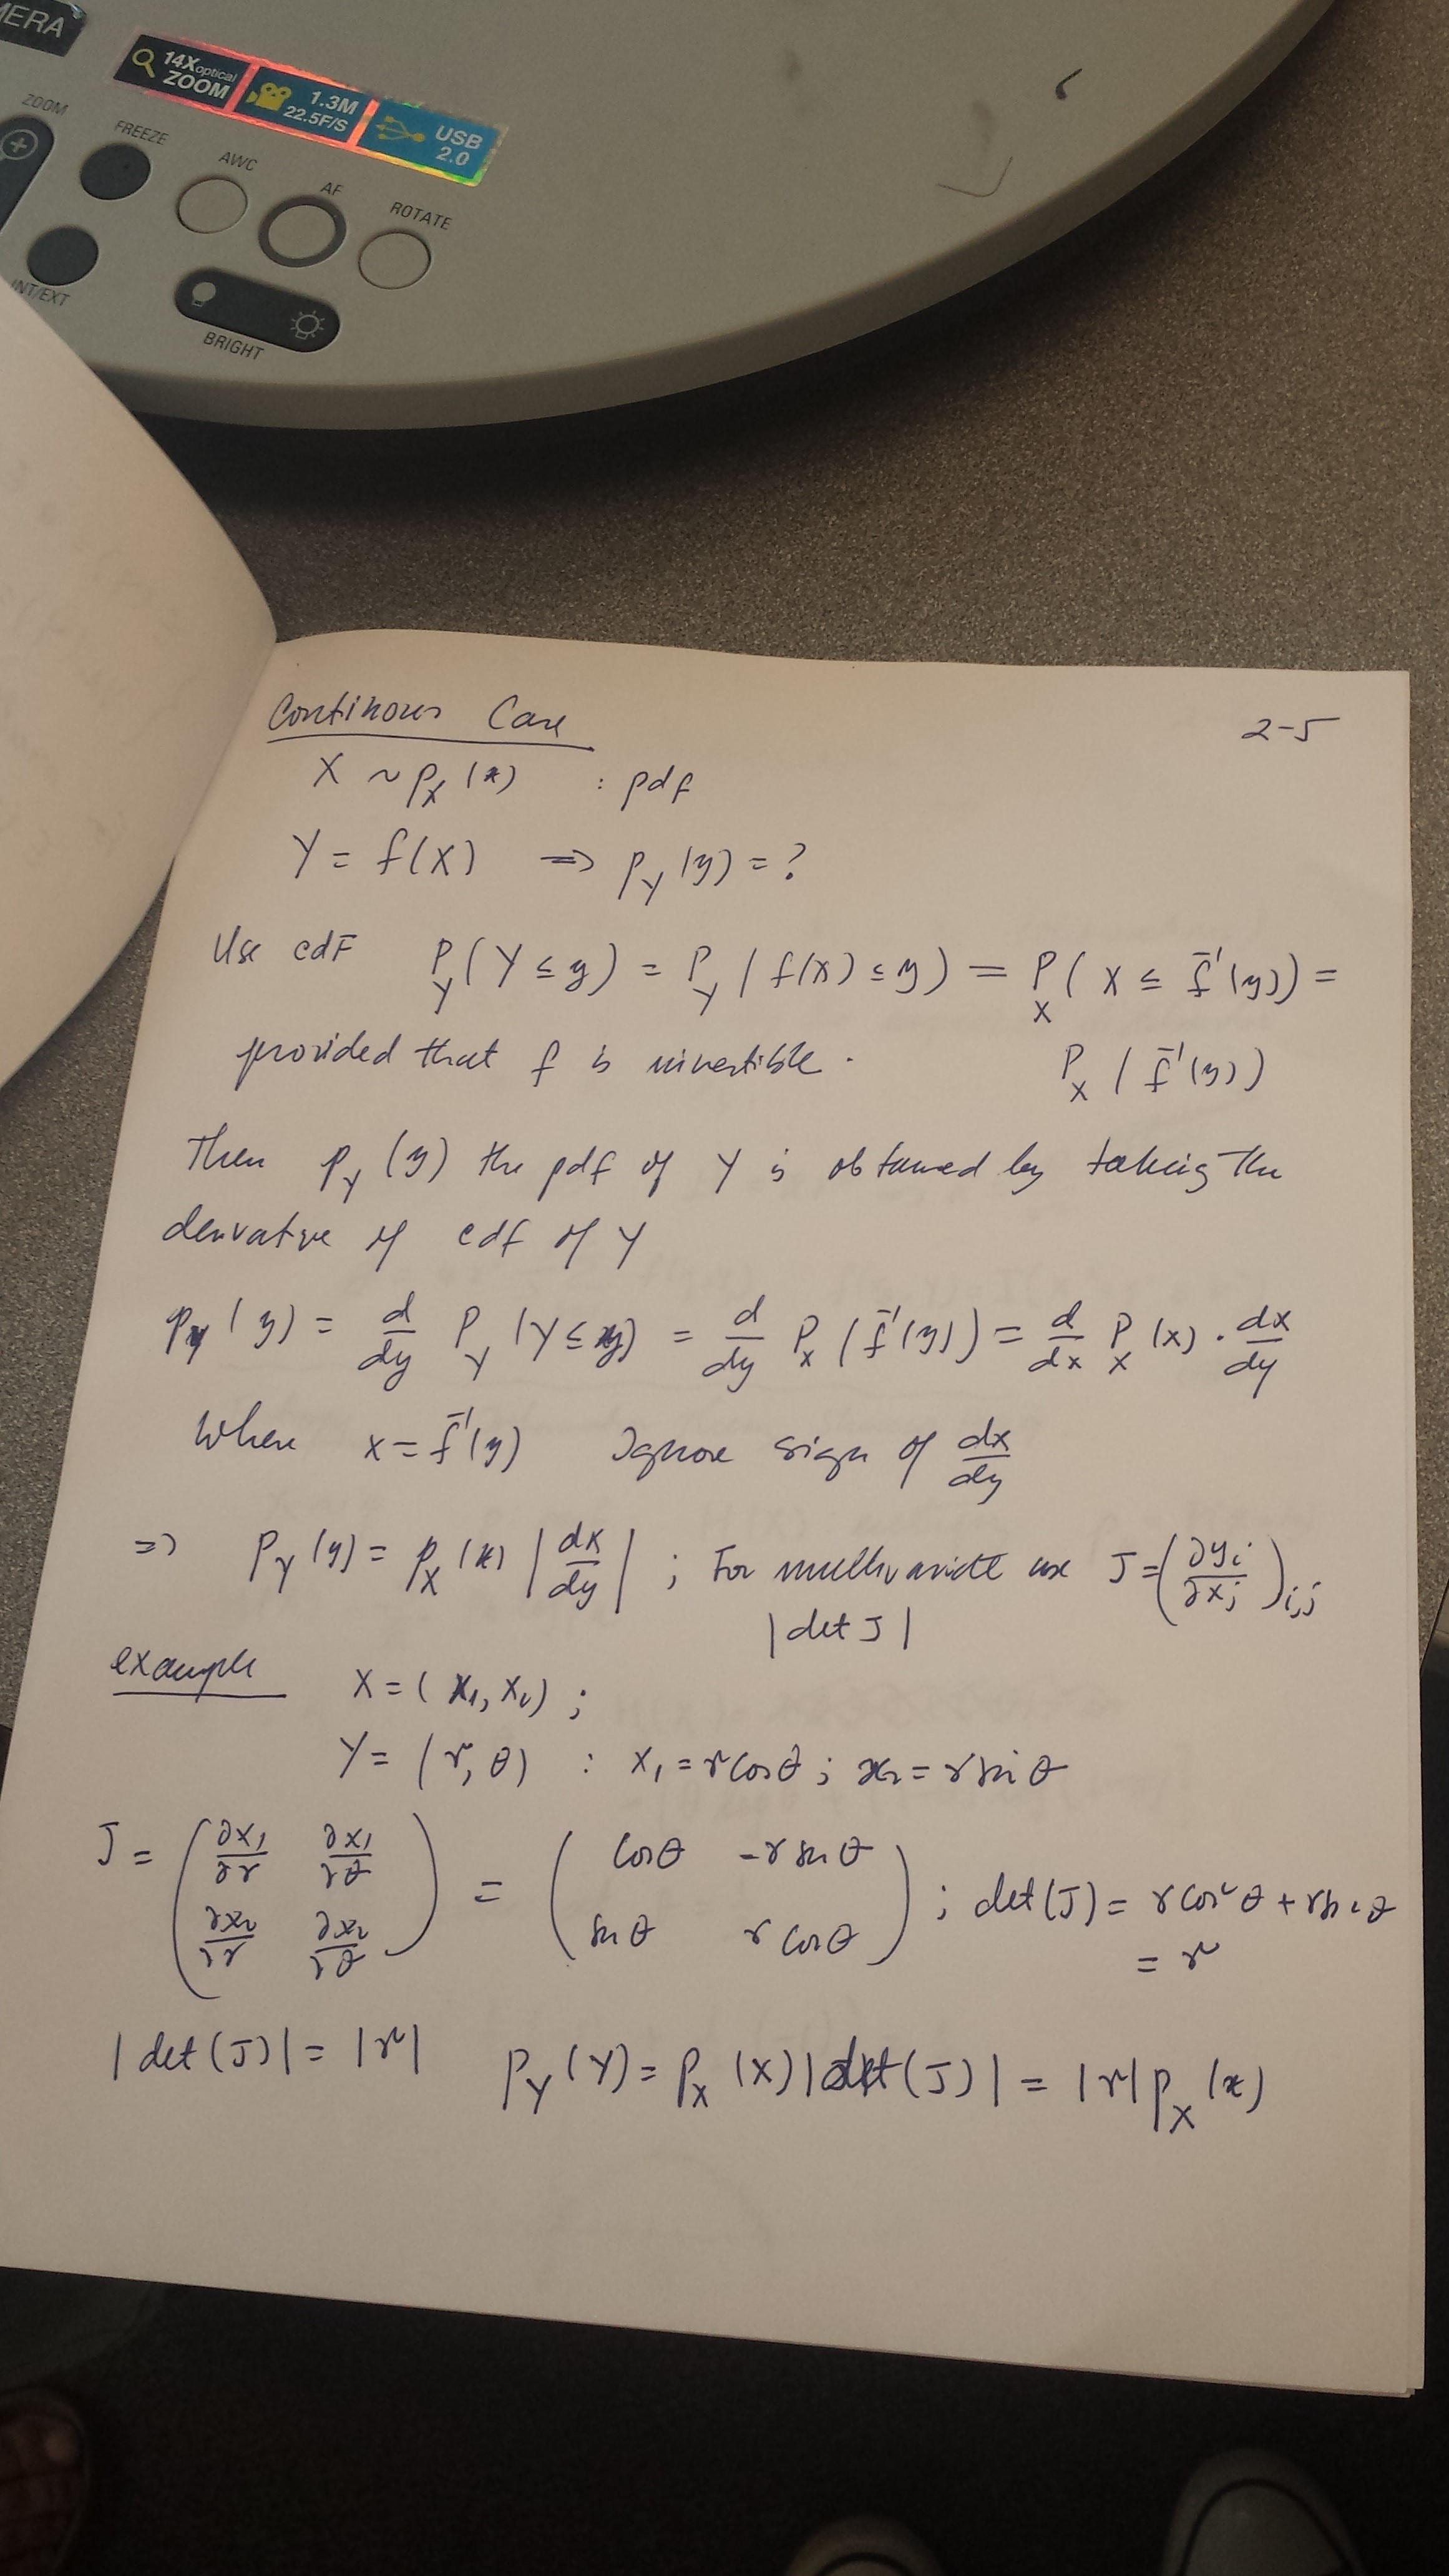 MERA
14X optical
ZOOM
1.3M
22.5F/S
USB
2.0
ZOOM
FREEZE
AWC
AF
ROTATE
INT/EXT
BRIGHT
Continous Case
2-5
X ~ p_X(x) : pdf
Y = f(X) => p_Y(y) = ?
Use cdF P_Y(Y ≤ y) = P_Y(f(X) ≤ y) = P_X(X ≤ f^{-1}(y)) =
provided that f is invertible. P_X(f^{-1}(y))
Then p_Y(y) the pdf of Y is obtained by taking the
derivative of cdf of Y
p_Y(y) = d/dy P_Y(Y ≤ y) = d/dy P_X(f^{-1}(y)) = d/dx P_X(x) · dx/dy
Where x = f^{-1}(y) Ignore sign of dx/dy
=> p_Y(y) = p_X(x) |dx/dy| ; For multivariate use J = (∂y_i/∂x_j)_{i,j}
|det J|
example X = (x_1, x_2) ;
Y = (r, θ) : x_1 = r cos θ ; x_2 = r sin θ
J = ( ∂x_1/∂r ∂x_1/∂θ ) = ( cos θ -r sin θ ) ; det(J) = r cos² θ + r sin² θ
( ∂x_2/∂r ∂x_2/∂θ ) ( sin θ r cos θ ) = r
|det(J)| = |r| p_Y(Y) = p_X(X) |det(J)| = |r| p_X(x)